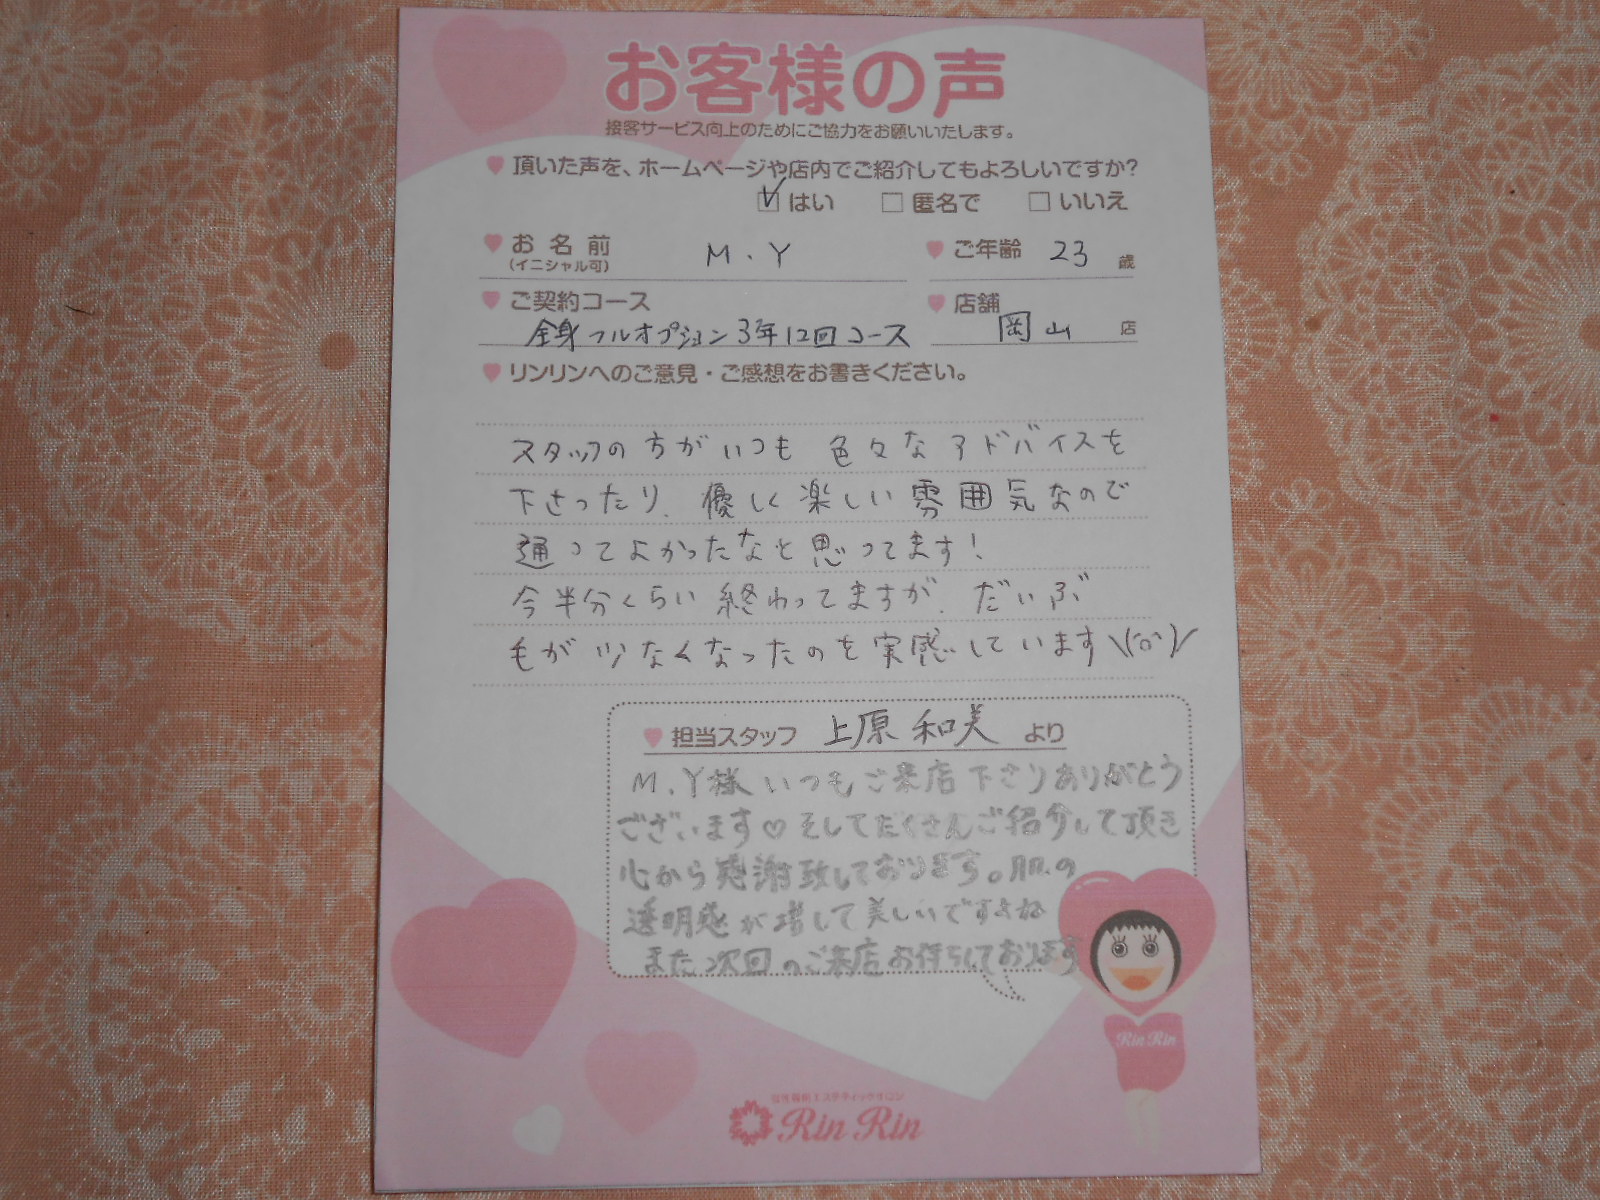 お客様の声
接客サービス向上のためにご協力をお願いいたします。
頂いた声を、ホームページや店内でご紹介してもよろしいですか?
はい 匿名で いいえ
お名前 M.Y ご年齢 23 歳
(イニシャル可)
ご契約コース 店舗
全身フルオプション3年12回コース 岡山 店
リンリンへのご意見・ご感想をお書きください。
スタッフの方がいつも色々なアドバイスを
下さったり、優しく楽しい雰囲気なので
通ってよかったなと思ってます!
今半分くらい終わってますが、だいぶ
毛が少なくなったのを実感しています\(^o^)/
担当スタッフ 上原和美 より
M.Y様いつもご来店下さりありがとう
ございます♡そしてたくさんご紹介して頂き
心から感謝致しております。肌の
透明感が増して美しいですよね
また次回のご来店お待ちしております
Rin Rin
Rin Rin